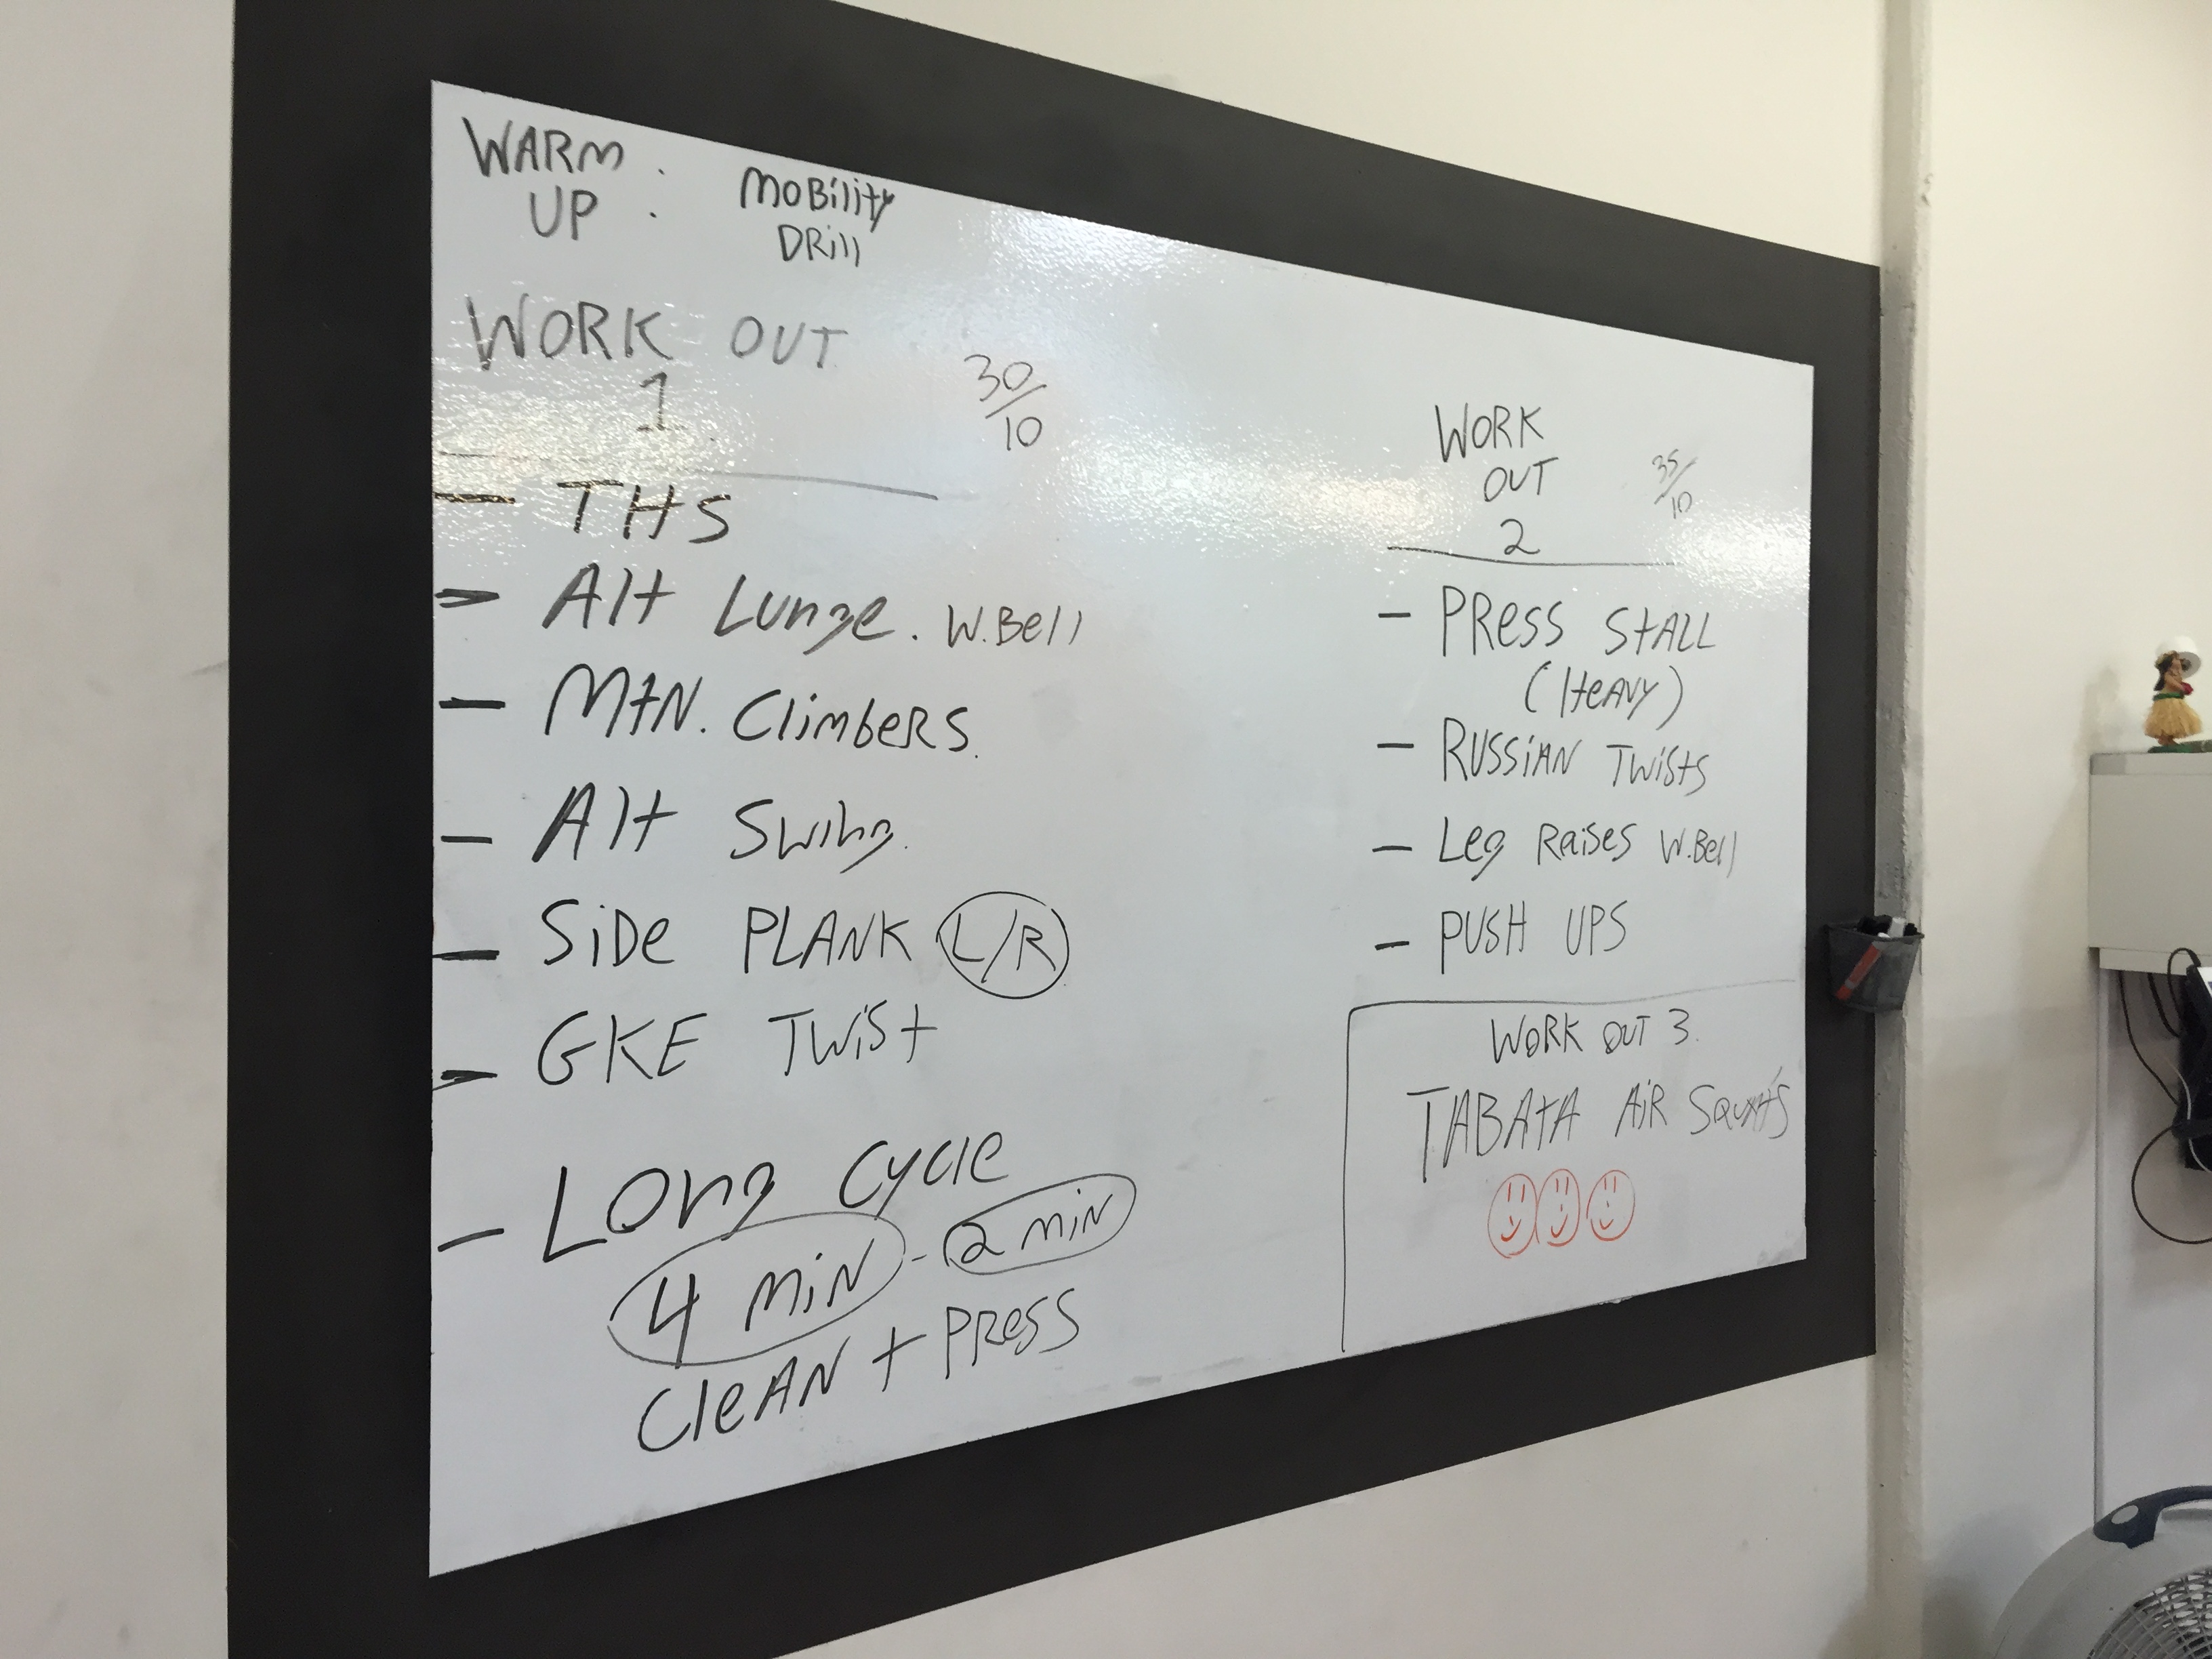 WARM
UP :
MOBility
DRill
WORK OUT
1
30/10
- THS
- Alt Lunge. W.Bell
- MtN. ClimbeRS.
- Alt Swing.
- SiDe PLANK L/R
- GKE TWist
- Long Cycle
4 MiN - 2 MiN
CleAN + PRess
WORK
OUT
2
35/10
- PRess StALL
(HeAVY)
- RUSSiAN TWists
- Leg Raises W.Bell
- PUSH UPS
WORK OUT 3.
TABAtA AiR SQUAtS